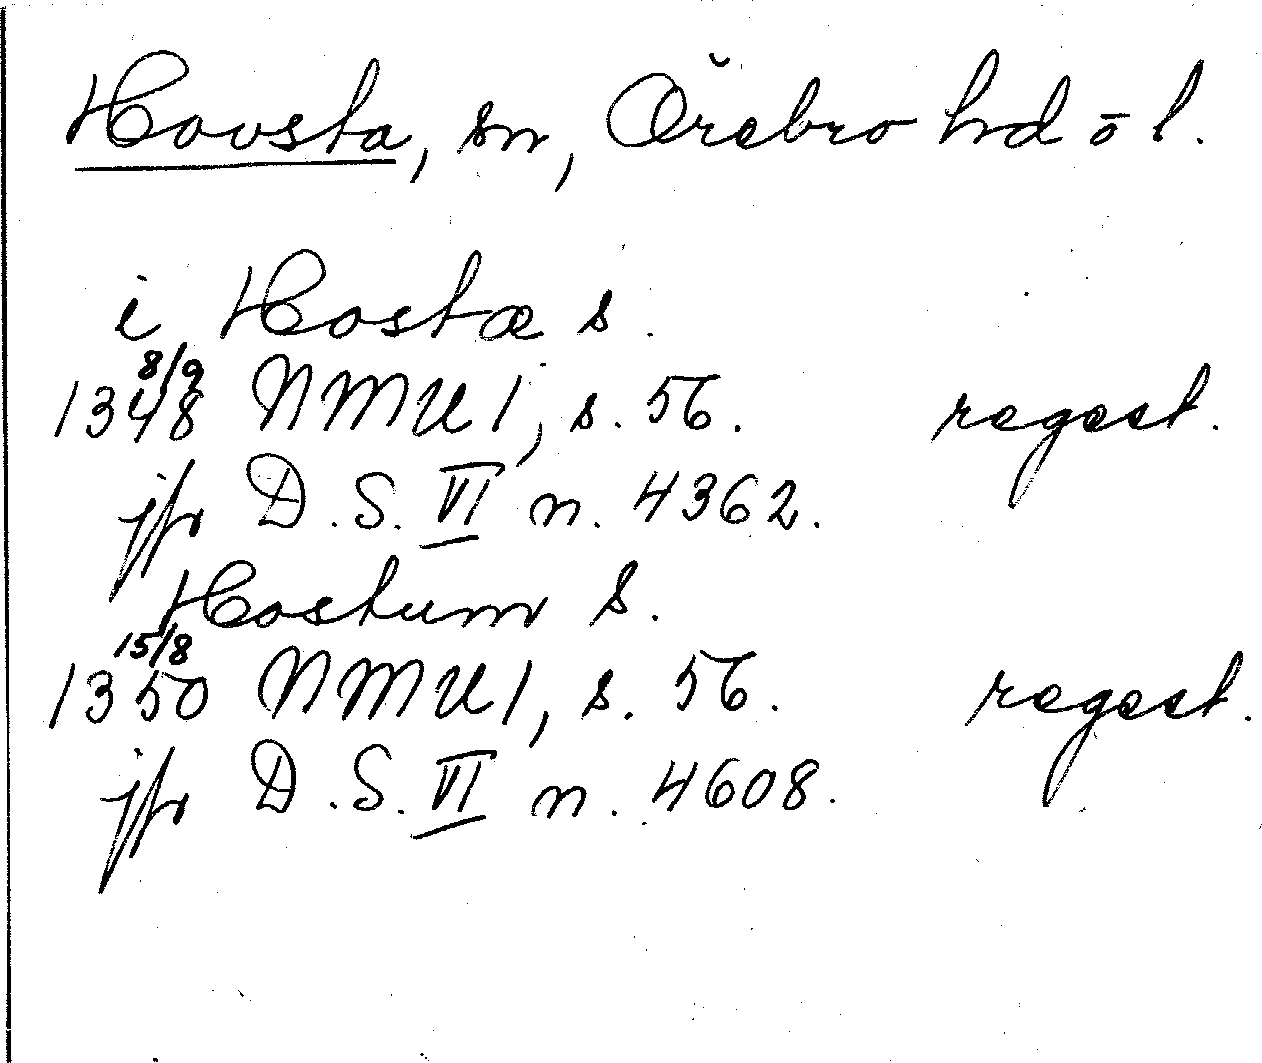 Hovsta, sn, Örebro hd o l.
i Hostæ s.
8/9
1348 NMU 1, s. 56. regest.
jfr D.S. VI n. 4362.
Hostum s.
15/8
1350 NMU 1, s. 56. regest.
jfr D.S. VI n. 4608.